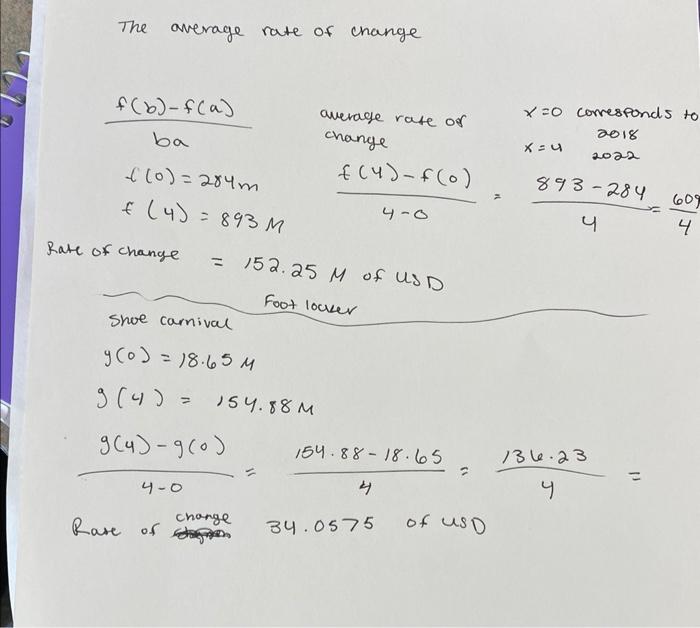 The average rate of change
f(b)-f(a)
ba
f(0) = 284m
f(4) = 893 M
average rate of
change
f(4)-f(0)
4-0
=
x=0 corresponds to
2018
x=4 2022
893-284
4
=
609
4
Rate of change = 152.25 M of USD
Foot locker
Shoe carnival
g(0) = 18.65 M
g(4) = 154.88 M
g(4)-g(0)
4-0
=
154.88-18.65
4
=
136.23
4
=
Rate of change 34.0575 of USD